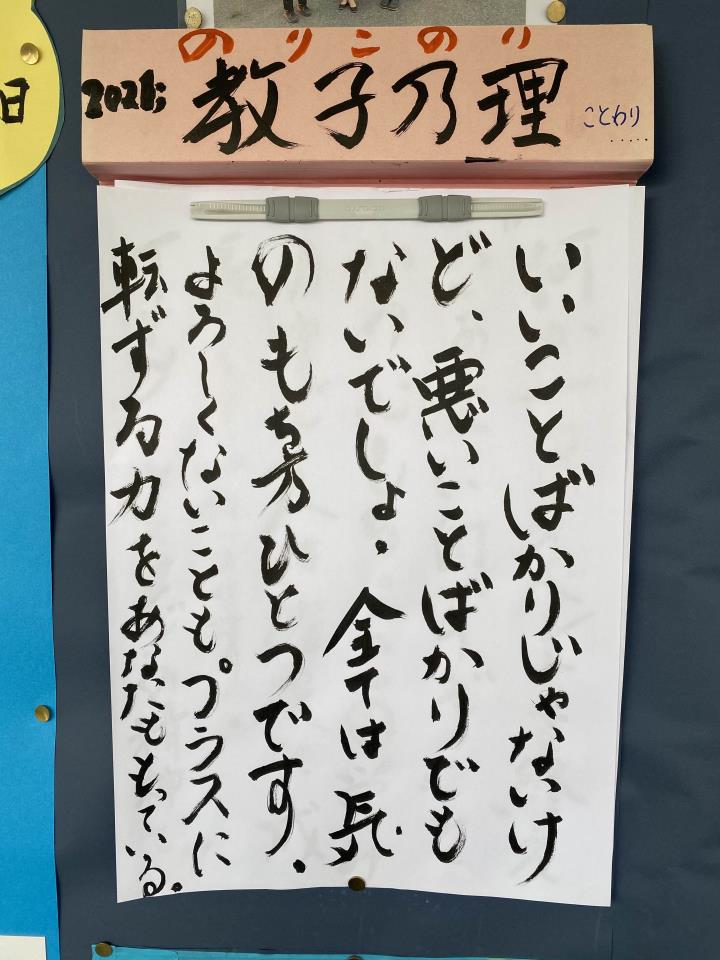 のりこのり
2021; 教子乃理 ことわり
いいことばかりじゃないけ
ど、悪いことばかりでも
ないでしょ。全ては気
のもち方ひとつです。
よろしくないことも。プラスに
転ずる力をあなたももっている。
日